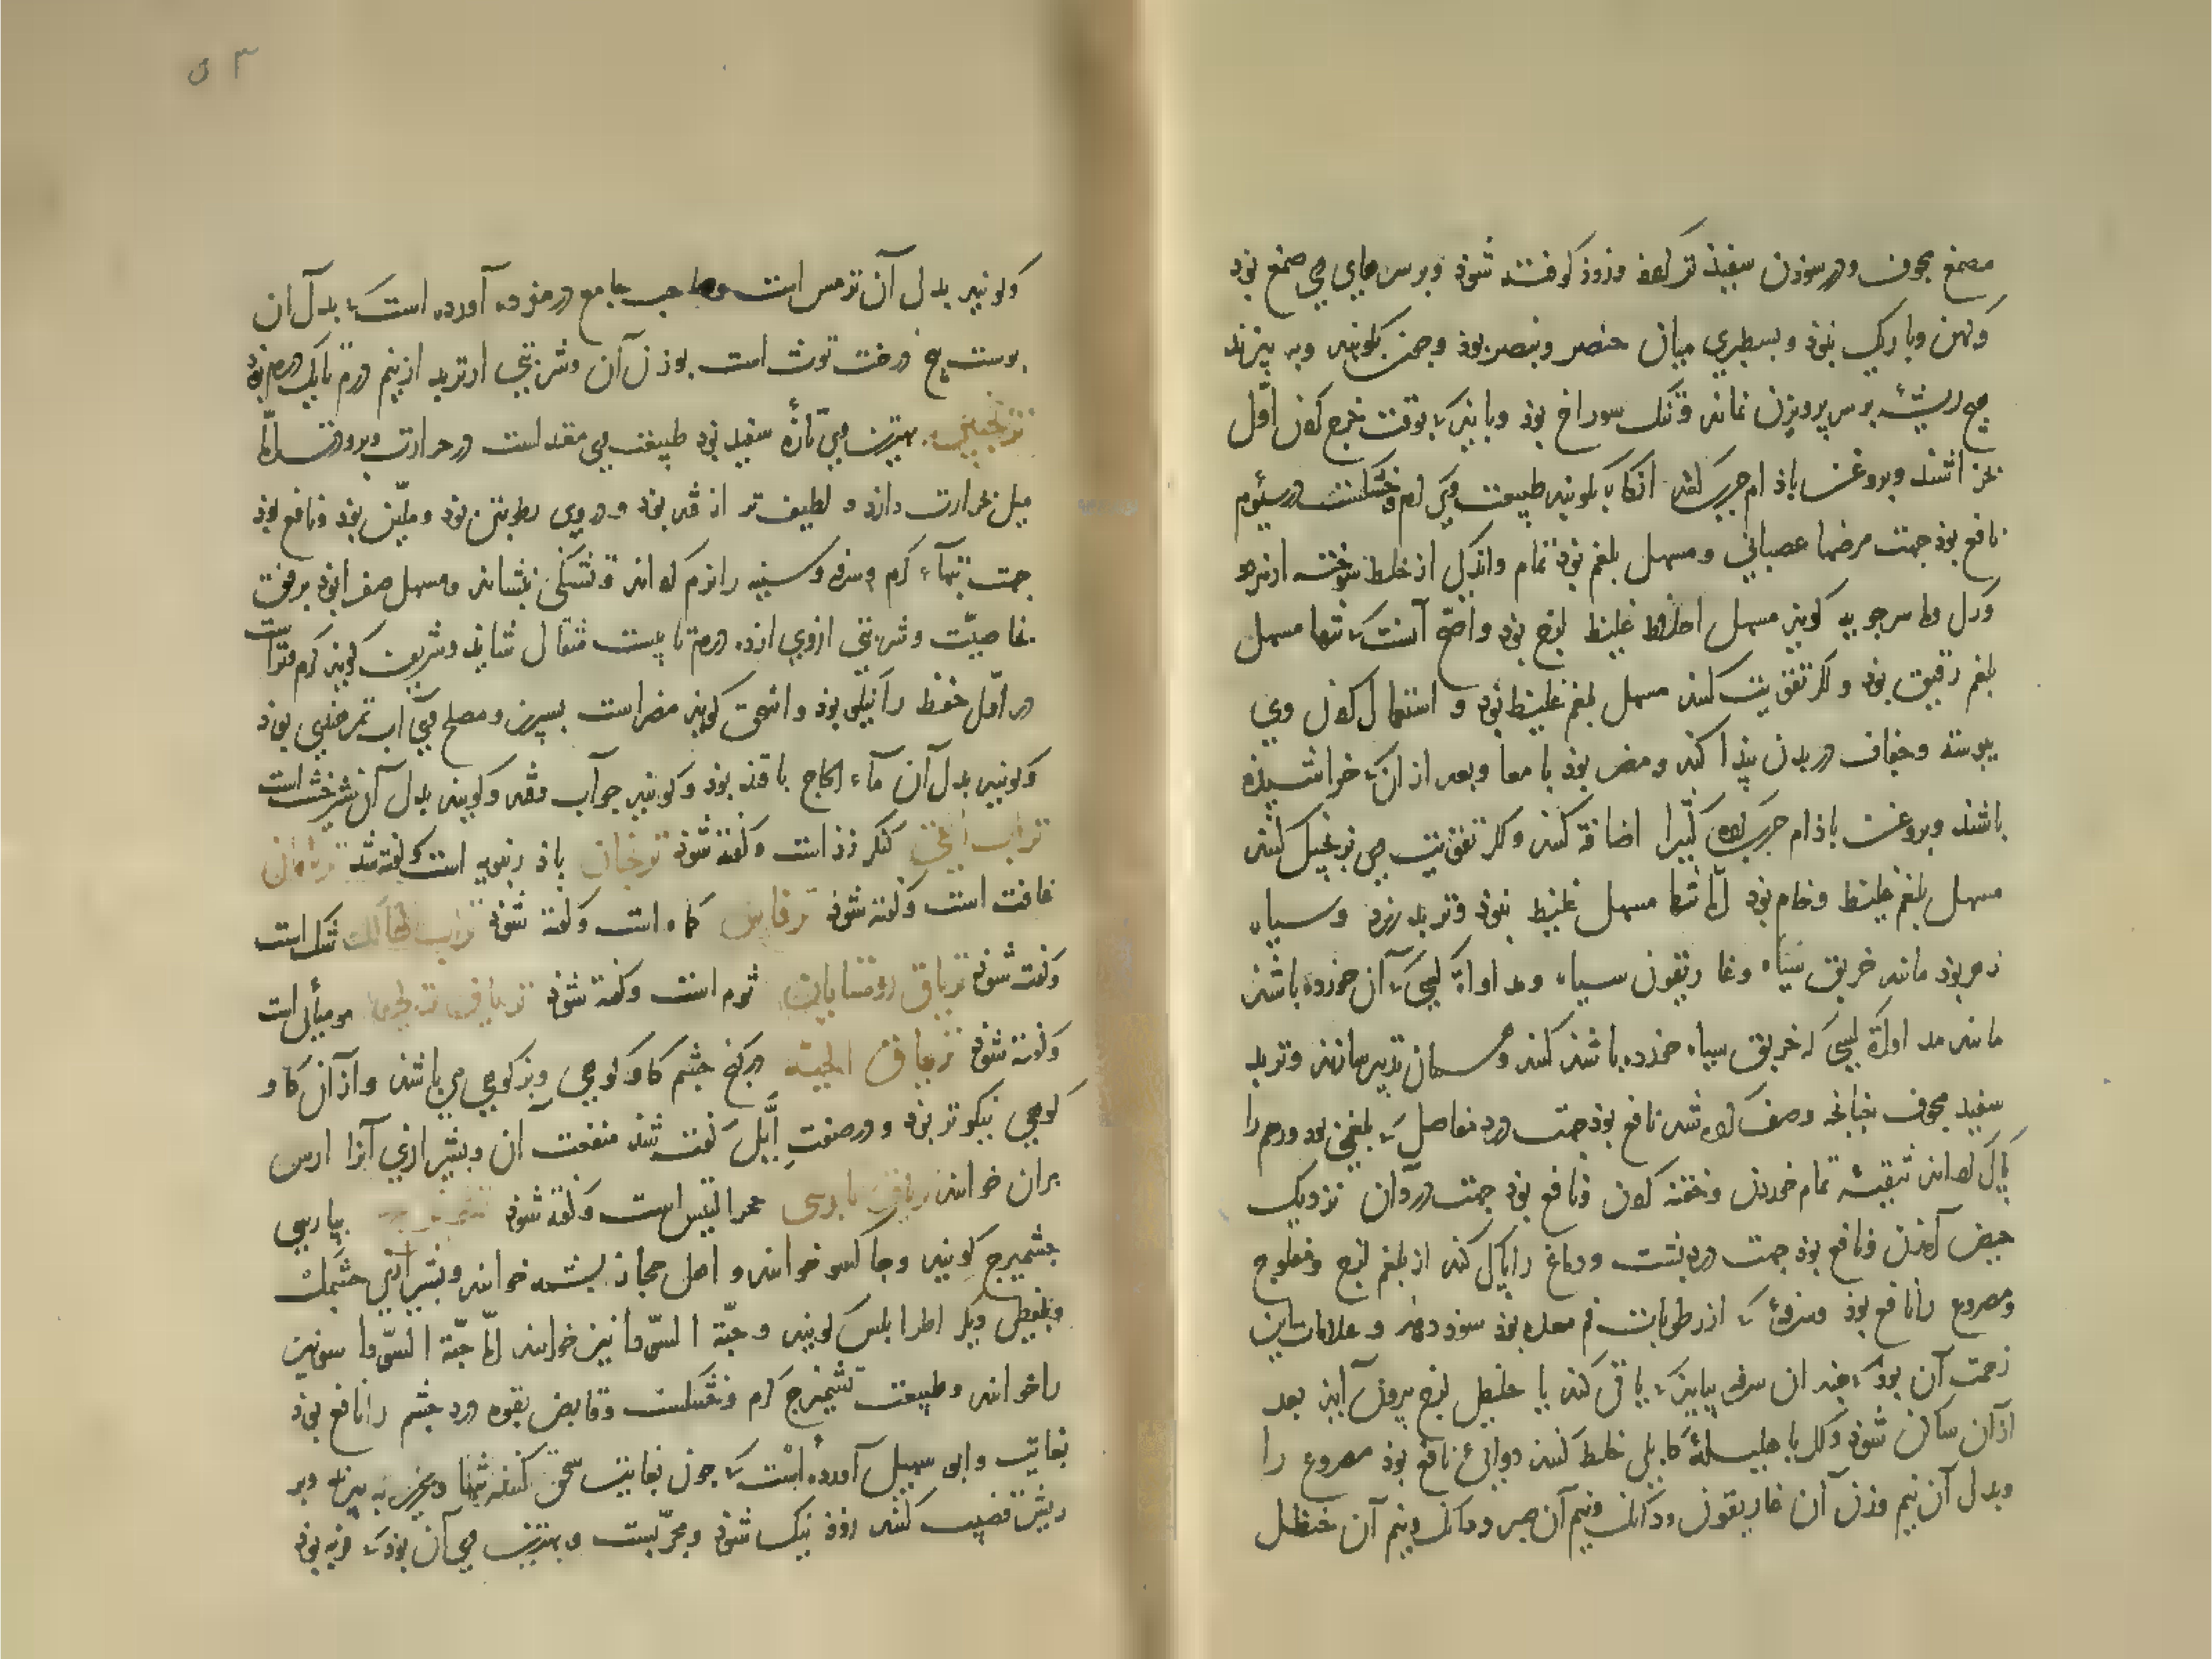 مصمغ مجوف ودرسوذن سفیذ تر کوفته وزوذ کوفته شوذ وبرس جای وی صمغ بوذ
کهن وباریک بنوذ وبسطبری میان خنصر وبنصر بوذ وجون بکوبند وبه بیزند
هیچ ریشه برس پرویزن نماند وتنک سوراخ بوذ وبایذ که بوقت خرج کردن اول
بخراشند وبروغن باذام جرب کنند انکاه بکوبند طبیعت وی کرم وخشکست درسیوم
نافع بوذ جهت مرضهاء عصبانی ومسهل بلغم بوذ تمام واندکی از خلط سوخته
کویند مسهل اخلاط غلیظ لزج بوذ واصح آنست که تنها مسهل
بلغم رقیق بوذ واکر تقویت کنند مسهل بلغم غلیظ بوذ واستعمال کردن وی
یبوست وجفاف دربدن پیذا کند ومضر بوذ بامعا وبعد از آن که خراشیذه
باشند وبروغن باذام جرب کرده کثیرا اضافه کنند واکر تقویت وی بزنجبیل کنند
مسهل بلغم غلیظ وخام بوذ اما تنها مسهل غلیظ بنوذ وتربد زرد وسیاه
زهر بوذ مانند خربق سیاه وغاریقون سیاه ومداواة کسی که آن خورده باشند
مانند مداواة کسی که خربق سیاه خورده باشند کنند وهمان تدبیر سازند وتربد
سفید مجوف جنانجه وصف کرده شد نافع بوذ جهت درد مفاصل که بلغمی بود ورحم را
پاک کرداند تنقیه تمام خوردن وحقنه کردن ونافع بوذ جهت درد آن نزدیک
حیض آمدن ونافع بوذ جهت درد پشت ودماغ را پاک کند از بلغم لزج ومفلوج
ومصروع را نافع بوذ وسرفه که از رطوبات فم معده بوذ سود دهد وعلامات این
زحمت آن بوذ که جندان سرفه بیاید که یا قی کند یا خلطی لزج بیرون آید بعد
ازان ساکن شوذ واکر با هلیلهٔ کابلی خلط کنند دوائی نافع بوذ مصروع را
وبدل آن نیم وزن آن غاریقون ودانک ونیم آن صبر ودانک ونیم آن حنظل
۵۳
وکویند بدل آن ترمس است وصاحب جامع درمفرده آورده است که بدل آن
پوست بیخ درخت توث است بوزن آن وشربتی ازتربد ازنیم درم تا یک درم بوذ
ترنجبین بهترین وی تازه سفید بود طبیعت وی معتدلست درحرارت وبرودت اما
میل بحرارت دارد ولطیف تر از قند بوذ ودروی رطوبتی بوذ وملین بوذ ونافع بوذ
جهت تبهاء کرم وسرفه وسینه را نرم کرداند وتشنکی بنشاند ومسهل صفرا بوذ برفق
بخاصیت وشربتی ازوی ازده درم تا بیست مثقال شاید وشریف کویند کرم وتراست
دراول حفظ رانیکو بوذ واسحق کوید مضراست بسپرز ومصلح وی آب تمر هندی بوذ
وکویند بدل آن ماء الحاج با قند بوذ وکویند جوآب وقند وکویند بدل آن شیرخشت است
تراب القی کنکر زذ است وکفته شوذ ترنجان باذ رنبویه است وکفته شد
غافت است وکفته شوذ ترفاس کماه است وکفته شوذ تراب هالک شک است
وکفته شوذ تریاق روستایان ثوم است وکفته شوذ تریاق ترکی مومیائی است
وکفته شوذ تریاق الحیه درکنج جشم کاو کوهی وبز کوهی می باشد وازآن کاو
کوهی نیکوتر بوذ ودرصفت ایل کفته شد منفعت آن وبشیرازی آنرا
خوانند تریاق فارسی حجرالتیس است وکفته شوذ بپارسی
جشمیزج کویند وجاکسو خوانند واهل حجاز بشمه خوانند وبشیرازی جشمک
وبلفظی دیکر اطرابلس کویند وحبة السودا نیز خوانند اما حبة السودا شونیز
را خوانند وطبیعت تشمیزج کرم وخشکست وقابض بقوه درد جشم را نافع بوذ
بغایت وابو سهیل آورده است که جون بغایت سحق کنند تنها وبحریر به بیزند وبر
ریش قضیب کنند زوذ نیک شوذ ومجربست وبهترین وی آن بوذ که فربه بوذ